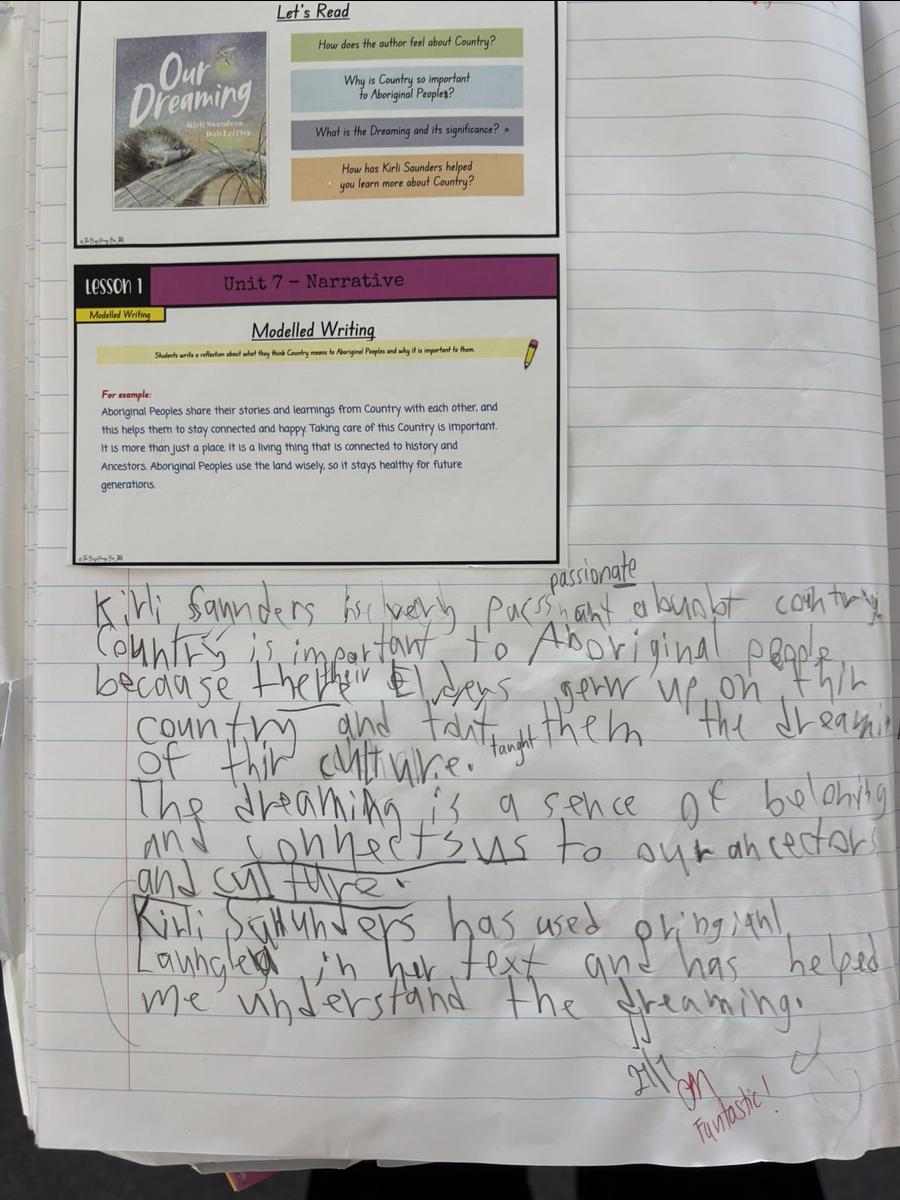 Let's Read
Our
Dreaming
Kirli Saunders
Dub Leffler
How does the author feel about Country?
Why is Country so important
to Aboriginal Peoples?
What is the Dreaming and its significance?
How has Kirli Saunders helped
you learn more about Country?
LESSON 1
Unit 7 - Narrative
Modelled Writing
Modelled Writing
Students write a reflection about what they think Country means to Aboriginal Peoples and why it is important to them.
For example:
Aboriginal Peoples share their stories and learnings from Country with each other, and
this helps them to stay connected and happy. Taking care of this Country is important.
It is more than just a place. It is a living thing that is connected to history and
Ancestors. Aboriginal Peoples use the land wisely, so it stays healthy for future
generations.
passionate
Kirli Saunders is very country
Country is important to Aboriginal people
because their Elders gerw up on thir
country and tout taught them the dreami
of thir culture.
The dreaming is a sence of belonying
and connects us to our ancectors
and culture.
Kirli Saunders has used
in her text and has helped
me understand the dreaming.
21/7
Fantastic!